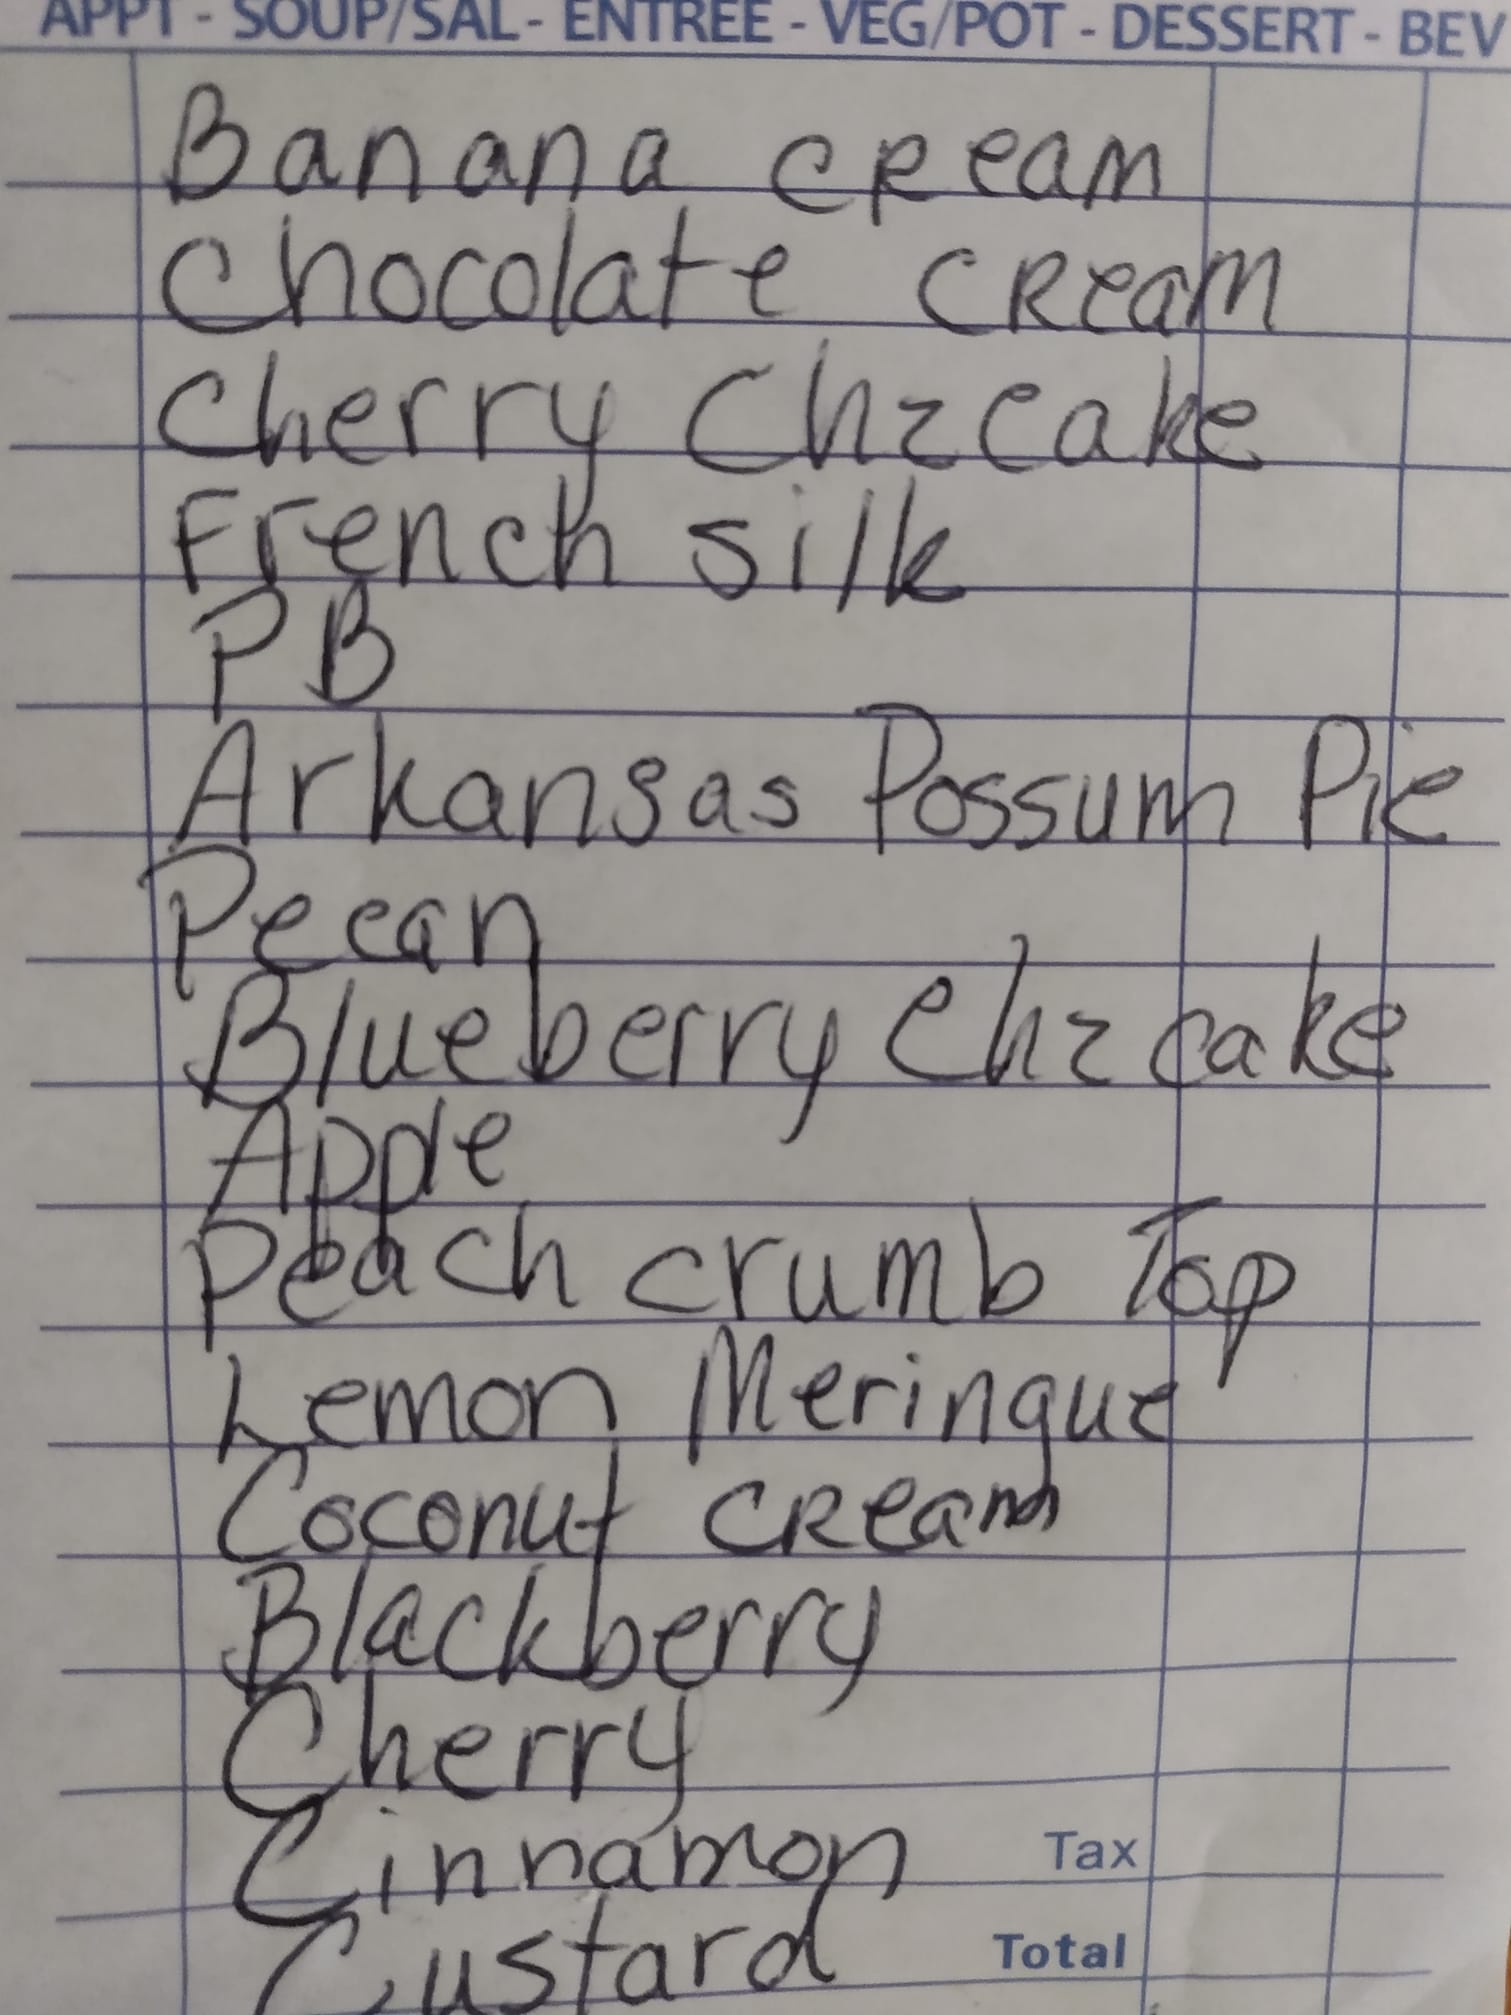 APPT - SOUP/SAL - ENTREE - VEG/POT - DESSERT - BEV
Banana cream
Chocolate cream
Cherry Chzcake
French silk
PB
Arkansas Possum Pie
Pecan
Blueberry Chzcake
Apple
Peach crumb Top
Lemon Meringue
Coconut cream
Blackberry
Cherry
Cinnamon Tax
Custard Total